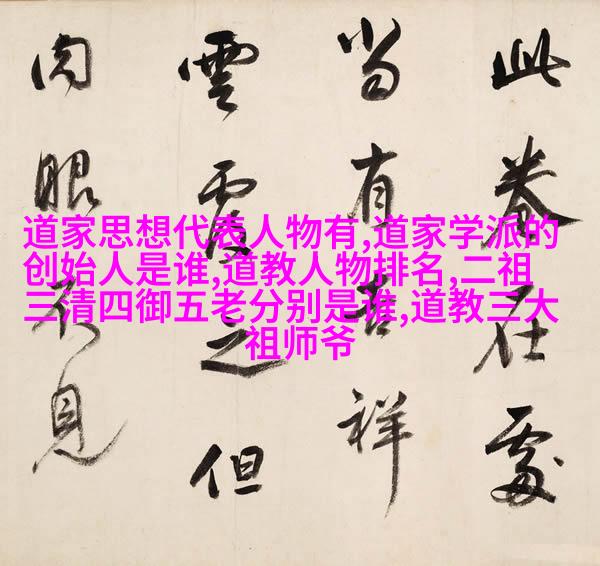 此卷在處
當有吉祥
雲覆之但
肉眼不見
道家思想代表人物有,道家学派的
创始人是谁,道教人物排名,二祖
三清四御五老分别是谁,道教三大
祖师爷